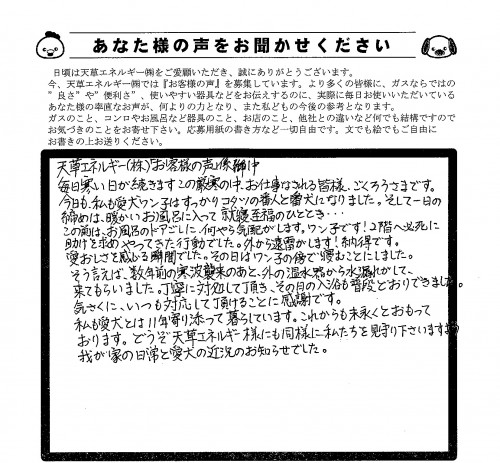 あなた様の声をお聞かせください
日頃は天草エネルギー㈱をご愛顧いただき、誠にありがとうございます。
今、天草エネルギー㈱では『お客様の声』を募集しています。より多くの皆様に、ガスならではの
”良さ”や”便利さ”、使いやすい器具などをお伝えするのに、実際に毎日お使いいただいている
あなた様の率直なお声が、何よりの力となり、また私どもの今後の参考となります。
ガスのこと、コンロやお風呂など器具のこと、お店のこと、他社との違いなど何でも結構ですので
お気づきのことをお寄せ下さい。応募用紙の書き方など一切自由です。文でも絵でもご自由に
お書きの上お送りください。
天草エネルギー(株)お客様の声係御中
毎日寒い日が続きますこの厳寒の中、お仕事なされる皆様、ごくろうさまです。
今日も、私も愛犬ワン子はすっかりコタツの番人と番犬になりました。そして一日の
締めは、暖かいお風呂に入って就寝至福のひととき…
この前は、お風呂のドアごしに、何やら気配がします。ワン子です！2階へ必死に
助けを求めやってきた行動でした。外から遠雷がします！納得です。
愛おしさを感じる瞬間でした。その日はワン子の傍で寝むことにしました。
そう言えば、数年前の寒波襲来のあと、外の温水器から水漏れがして、
来てもらいました。丁寧に対処して頂き、その日の入浴も普段どおりできました。
気さくに、いつも対応して頂けることに感謝です。
私も愛犬とは11年寄り添って暮らしています。これからも末永くとおもって
おります。どうぞ天草エネルギー様にも同様に私たちを見守り下さいますよう
我が家の日常と愛犬の近況のお知らせでした。